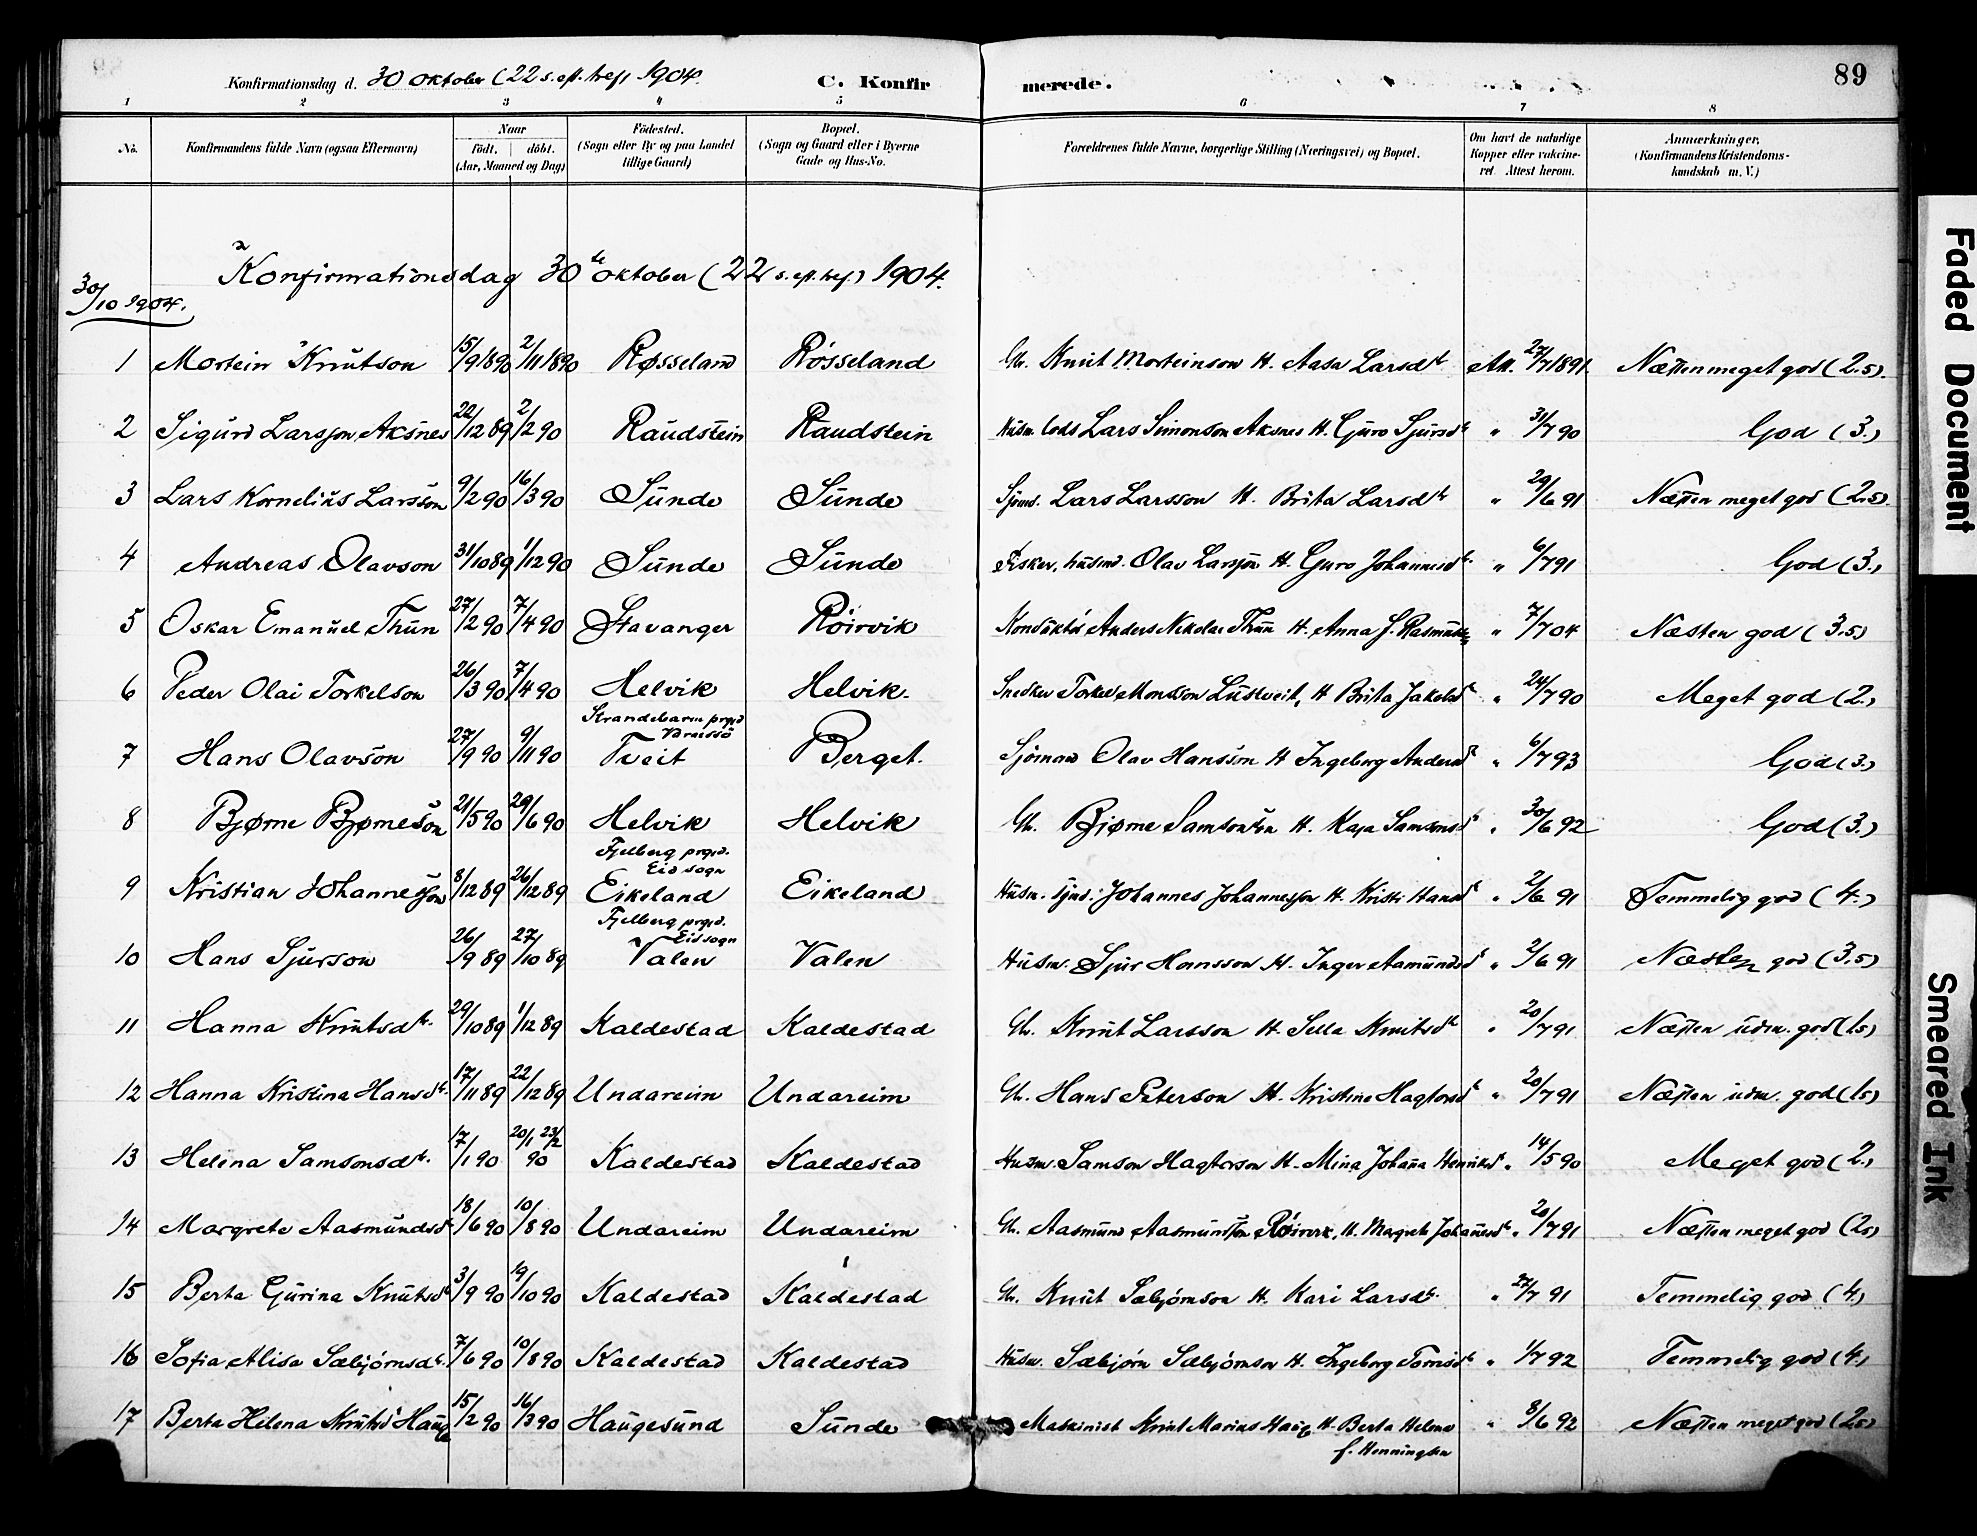 Konfirmationsdag d. 30 oktober (22 s. eft. tref) 1904. C. Konfirmerede. 89
1 2 3 4 5 6 7 8
No. Konfirmandens fulde Navn (ogsaa Efternavn) Naar födt. döbt. (Aar, Maaned og Dag) Födested. (Sogn eller By og paa Landet tillige Gaard) Bopæl. (Sogn og Gaard eller i Byerne Gade og Hus-No. Forældrenes fulde Navne, borgerlige Stilling (Næringsvei) og Bopæl. Om havt de naturlige Kopper eller vakcineret. Attest herom. Anmærkninger. (Konfirmandens Kristendomskundskab m. V.)
Konfirmationsdag 30te oktober (22 s. eft. tref.) 1904.
30/10 1904.
1 Mostein Knutson 15/9 1890 2/11 1890 Røsseland Røsseland Gb. Knut Morteinson H. Aasa Larsdt. Att. 27/7 1891. Næsten meget god (2.5).
2 Sigurd Larsson Aksnes 22/12 89 2/2 90 Raudstein Raudstein Husm. Lods Lars Simonson Aksnes H. Guro Sjursdt. " 31/7 90 God (3.)
3 Lars Kornelius Larsson 9/2 90 16/3 90 Sunde Sunde Sjømd. Lars Larsson H. Brita Larsdt. " 29/6 91 Næsten meget god (2.5).
4 Andreas Olavson 31/10 89 1/12 90 Sunde Sunde Fisker, husmd. Olav Larsson H. Guro Johannesdt. " 6/7 91 God (3.)
5 Oskar Emanuel Thun 27/2 90 7/4 90 Stavanger Röirvik Konduktör Anders Nikolai Thun H. Anna J. Rasmusdt. " 7/7 04 Næsten god (3.5)
6 Peder Olai Torkelson 26/3 90 7/4 90 Helvik Helvik. Snedker Torkel Monsson Lustveit, H. Brita Jakobsdt. " 24/7 90 Meget god (2.)
7 Hans Olavson 27/9 90 9/11 90 Strandebarm prgjd Tveit Berget. Sjömand Olav Hansson H. Ingeborg Andersdt. " 6/7 93 God (3.)
8 Bjørne Bjørneson 21/5 90 29/6 90 Helvik Helvik Gb. Bjørne Samsonson H. Kaja Samsonsdt. " 30/6 92 God (3.)
9 Kristian Johannesson 8/12 89 26/12 89 Fjelberg prgjd. Eid sogn Eikeland Eikeland Husm. sjmd. Johannes Johannesson H. Kristi Hansdt. " 2/6 91 Temmelig god (4.)
10 Hans Sjurson 26/9 89 27/10 89 Fjelberg prgjd. Eid sogn Valen Valen Husm. Sjur Hansson H. Inger Aamundsdt. " 2/6 91 Næsten god (3.5)
11 Hanna Knutsdt. 29/10 89 1/12 89 Kaldestad Kaldestad Gb. Knut Larsson H. Sella Knutsdt. " 20/7 91 Næsten udm. god (1.5)
12 Hanna Kristina Hansdt. 17/11 89 22/12 89 Undareim Undareim Gb. Hans Peterson H. Kristine Hagtorsdt. " 20/7 91 Næsten udm. god (1.5)
13 Helena Samsonsdt. 17/1 90 20/1 23/2 90 Kaldestad Kaldestad Husm. Samson Hagtorson H. Mina Johana Henriksdt. " 14/5 90 Meget god (2.)
14 Margrete Aasmundsdt. 18/6 90 10/8 90 Undareim Undareim Gb. Aasmund Aasmundson Röirvik, H. Magrete Johanesdt. " 20/7 91 Næsten meget god (2.5)
15 Berta Gurina Knutsdt. 3/9 90 19/10 90 Kaldestad Kaldestad Gb. Knut Sæbjörnson H. Kari Larsdt. " 27/7 91 Temmelig god (4.)
16 Sofia Alisa Sæbjörnsdt. 7/6 90 10/8 90 Kaldestad Kaldestad Husm. Sæbjörn Sæbjörnson H. Ingeborg Tomisdt. " 1/7 92 Temmelig god (4.)
17 Berta Helena Knutsdt Haug 15/2 90 16/3 90 Haugesund Sunde Maskinist Knut Marius Haug H. Berta Helene " 8/6 92 Næsten meget god (2.5)
f. Henningsen
Faded Document
Smeared Ink